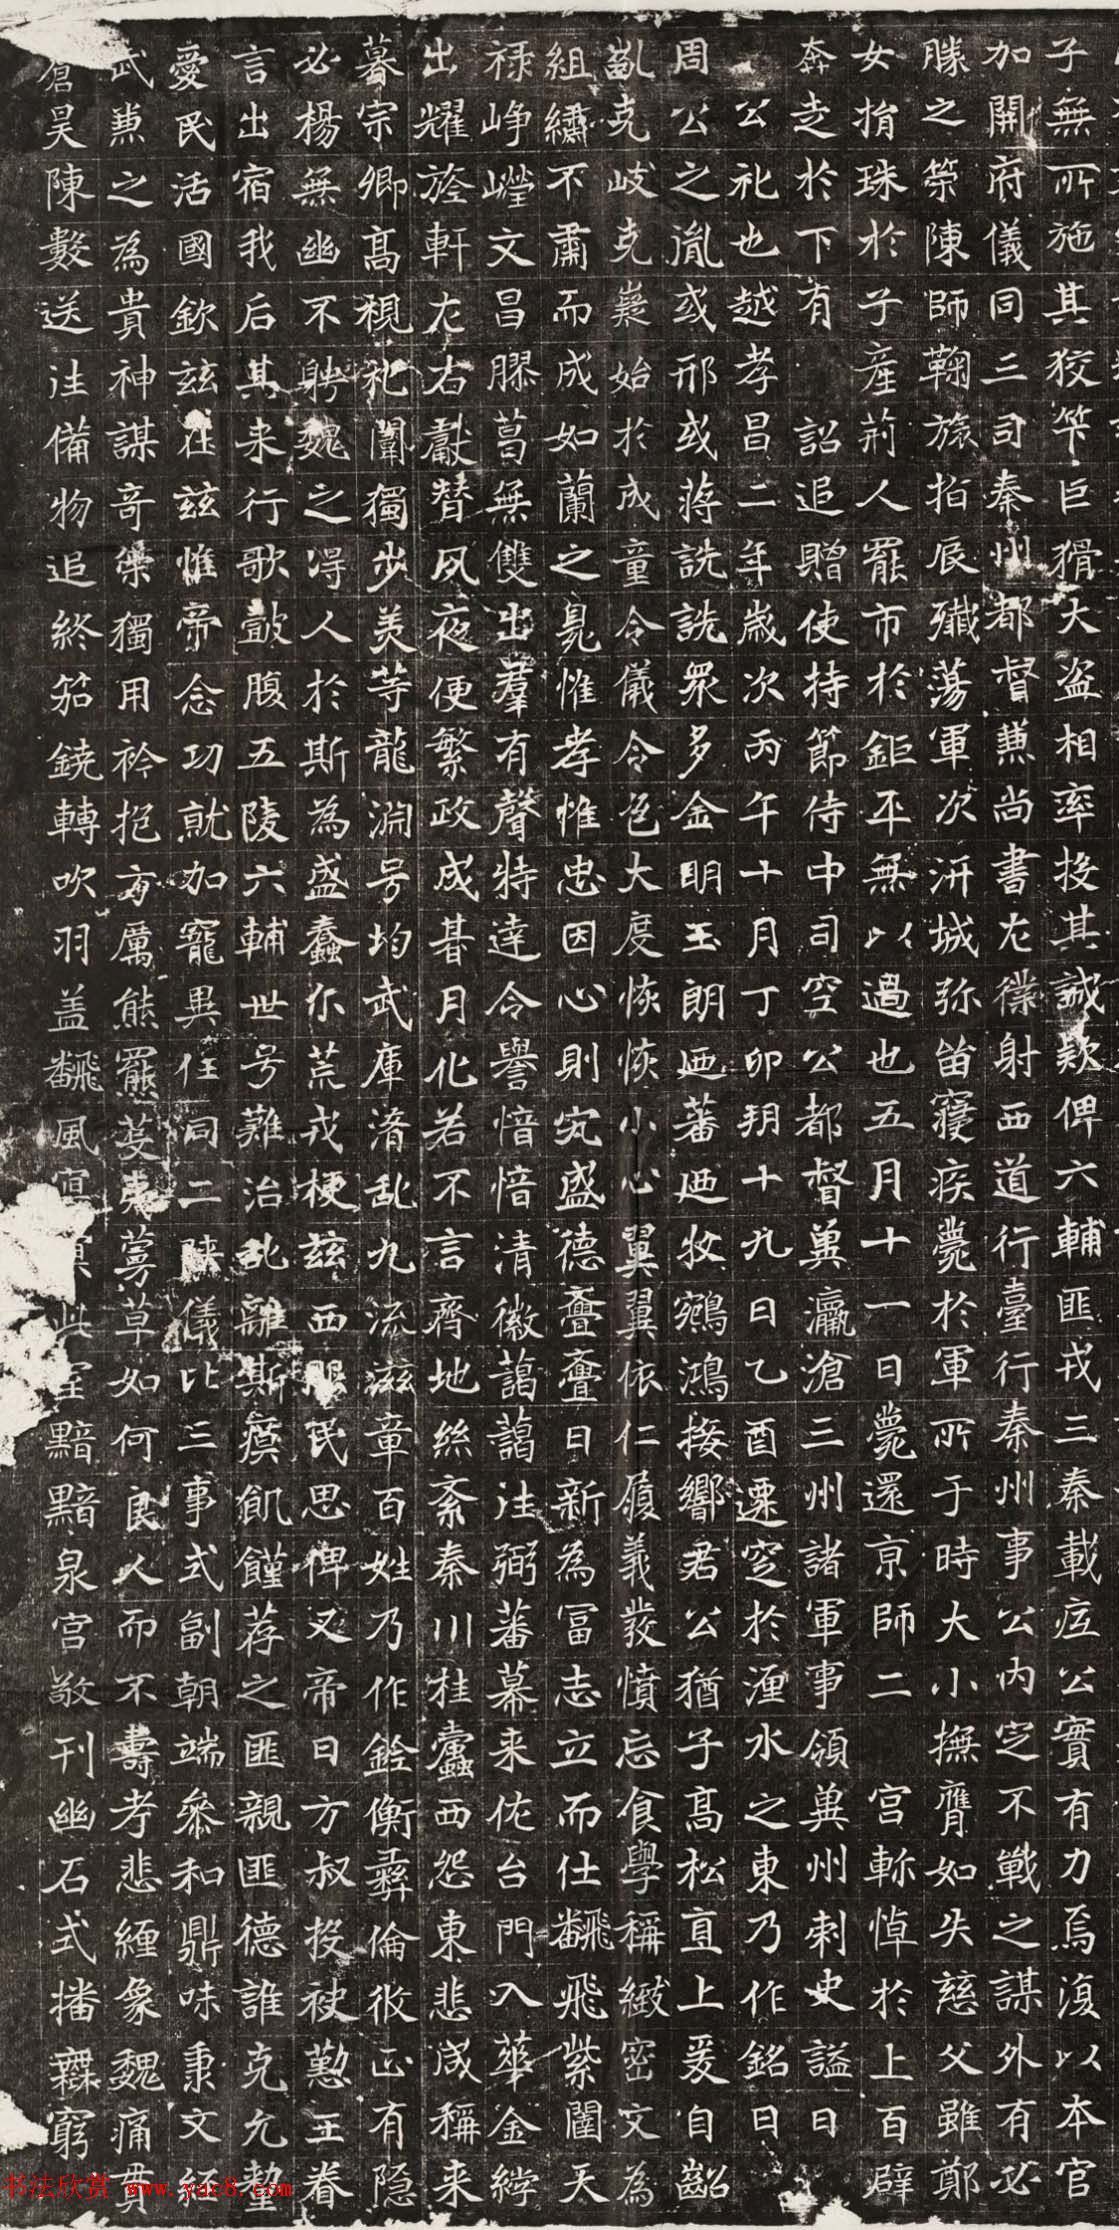 子無所施其狡筭巨猾大盜相率投其誠款俾六輔匪戎三秦載庇公實有力焉復以本官
加開府儀同三司秦州都督兼尚書左僕射西道行臺行秦州事公內定不戰之謀外有必
勝之策陳師鞠旅指辰殲蕩軍次汧城弥留寢疾薨於軍所于時大小撫膺如失慈父雖鄭
女捐珠於子產荊人罷市於鉅平無以過也五月十一日薨還京師二宮軫悼於上百辟
奔走於下有詔追贈使持節侍中司空公都督冀瀛滄三州諸軍事領冀州刺史謚曰
公礼也越孝昌二年歲次丙午十月丁卯朔十九日乙酉遷窆於湹水之東乃作銘曰
周公之胤或邢或蔣詵詵眾多金明玉朗迺蕃迺牧鵷鴻接響君公猶子高松直上爰自齠
亂克岐克嶷始於成童令儀令色大度恢恢小心翼翼依仁履義發憤忘食學稱緻密文為
組繡不肅而成如蘭之臭惟孝惟忠因心則究盛德亹亹日新為冨志立而仕飜飛紫闥天
祿崢嶸文昌膠葛無雙出羣有聲特達令譽愔愔清徽藹藹注弼蕃幕来佐台門入華金綍
出耀旍軒左右獻替夙夜便繁政成朞月化若不言齊地絲紊秦川桂蠹西怨東悲咸稱来
暮宗卿高視礼闈獨步美等龍淵号均武庫淆乱九流滋章百姓乃作銓衡彝倫攸正有隐
必楊無幽不聘魏之得人於斯為盛蠢尔荒戎梗茲西服民思俾乂帝曰方叔投袂懃王眷
言出宿我后其来行歌鼓腹五陵六輔世号難治乱離斯瘼飢饉荐之匪親匪德誰克允墊
愛民活國欽茲在茲惟帝念功就加寵異任同二陝儀比三事式副朝端叅和鼎味秉文經
武兼之為貴神謀奇藥獨用衿抱方厲熊羆芟夷蒭草如何良人而不壽考悲纏象魏痛貫
倉昊陳數送注備物追終笳鐃轉吹羽盖飜風黯黯泉宮敬刊幽石式播無窮
书法欣赏 www.yac8.com